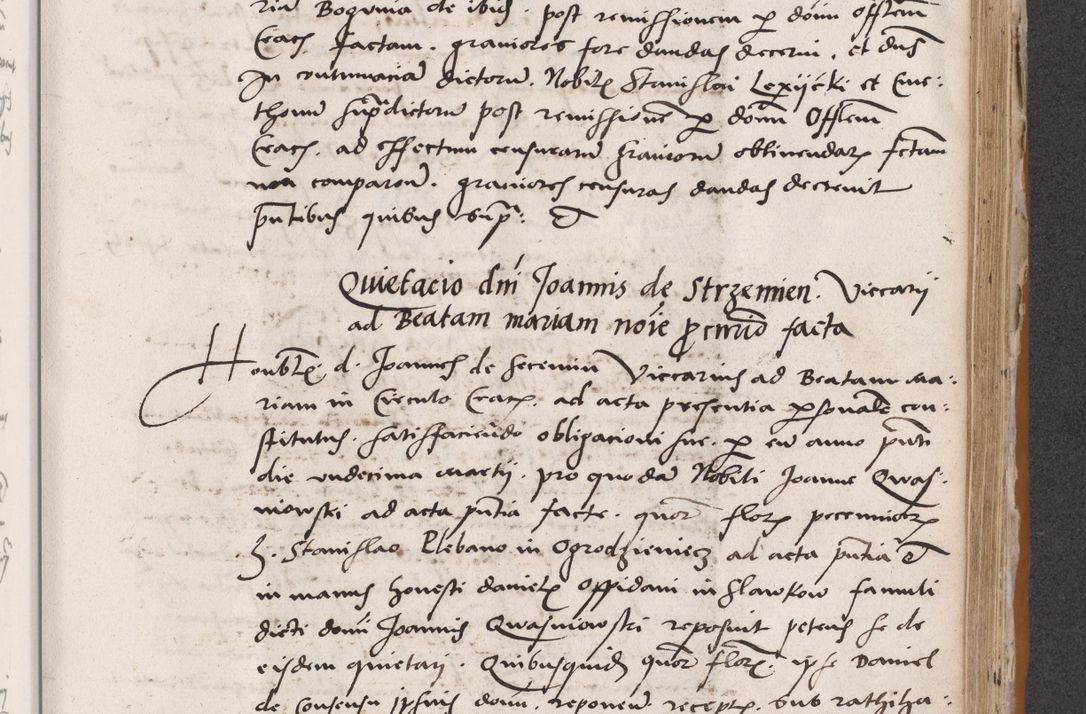 ria Bogunia de ibid. post remissionem p dom offlem
Crac. factam. graviores fore dandas decerni. et dns
In cutumacia dictoru. Nobil Stanislai Lexijcki et Cme:
thonu supradictoru post remissione p donu Offlem
Crac. ad effectum censuraru graviorum obtinendar fctam
non comparen. graviores censuras dandas decrevit
pntibus quibus sup: &
Quietacio dni Joannis de Strzemien. Viccarii
ad Beatam mariam novie p cinrid facta
Honbl d. Joannes de Secemin Viccarius ad Beatam ma:
riam in Circulo Crac. ad acta presentia psonale con:
stitutus. satisfaciendo obligacioni sue. p eu anno pnti
die undecima martii. pro quoda Nobili Joanne Qwas:
niowski ad acta pntia facte. quor flor pecuniar
3. Stanislao Plebano in Ogrodzieniecz ad acta pntia &
in manus honesti Daniel oppidani in Slawkow famuli
dicti domi Joannis Qwasniowski reposuit petens se de
eisdem quietari. Quibusquid quor flor. ipse Daniel
de Consensu ipsius domi. reponen recept. sub rathiha: